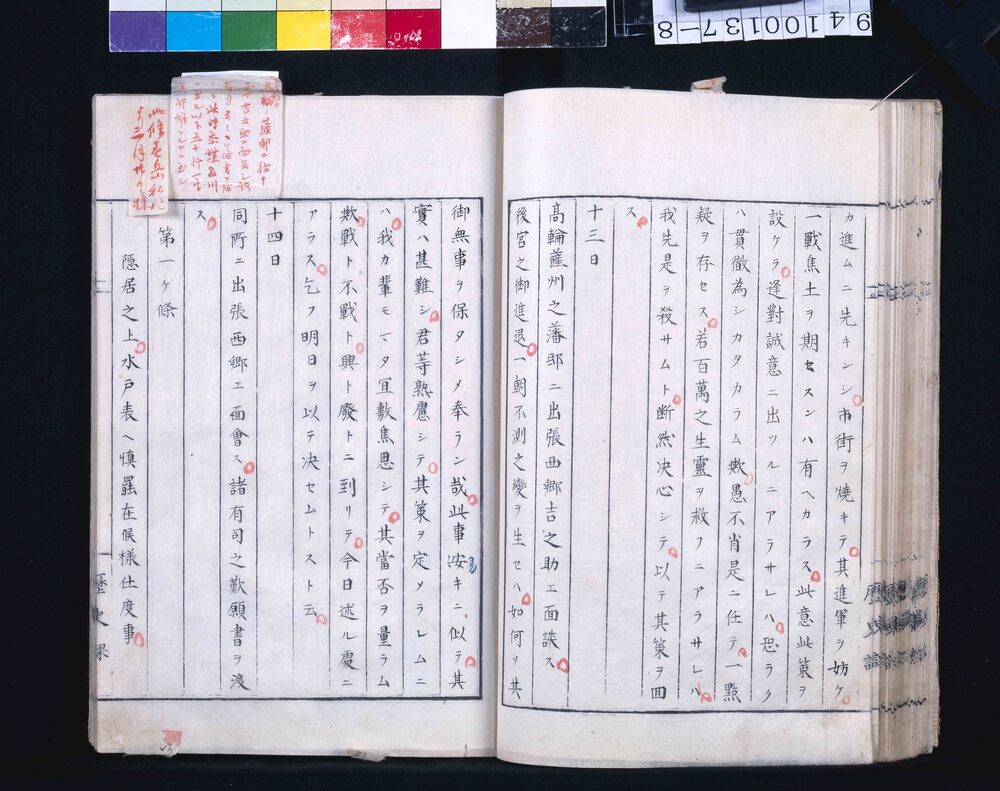 カ進ムニ先キンシ市街ヲ燒キテ其進軍ヲ妨ケ
一戰焦土ヲ期セスンハ有ヘカラス此意此策ヲ
設ケテ逢對誠意ニ出ツルニアラサレハ恐ラク
ハ貫徹為シカタカラム歟愚不肖是ニ任テ一點
疑ヲ存セス若百萬之生靈ヲ救フニアラサレハ
我先是ヲ殺サムト断然决心シテ以テ其策ヲ回
ス
十三日
高輪薩州之藩邸ニ出張西郷吉之助エ面談ス
後宮之御進退一朝不測之變ヲ生セハ如何ソ其
御無事ヲ保タシメ奉ラン哉此事安キニ似テ其
易
實ハ甚難シ君等熟慮シテ其策ヲ定メラレムニ
ハ我カ輩モマタ宜敷焦思シテ其當否ヲ量ラム
欺戰ト不戰ト興ト廢トニ到リテ今日述ル處ニ
アラス乞フ明日ヲ以テ决セムトスト云
十四日
同所ニ出張西郷エ面會ス諸有司之歎願書ヲ渡
ス
第一ヶ條
隠居之上水戸表ヘ慎罷在候様仕度事
歴史課
94100137-8